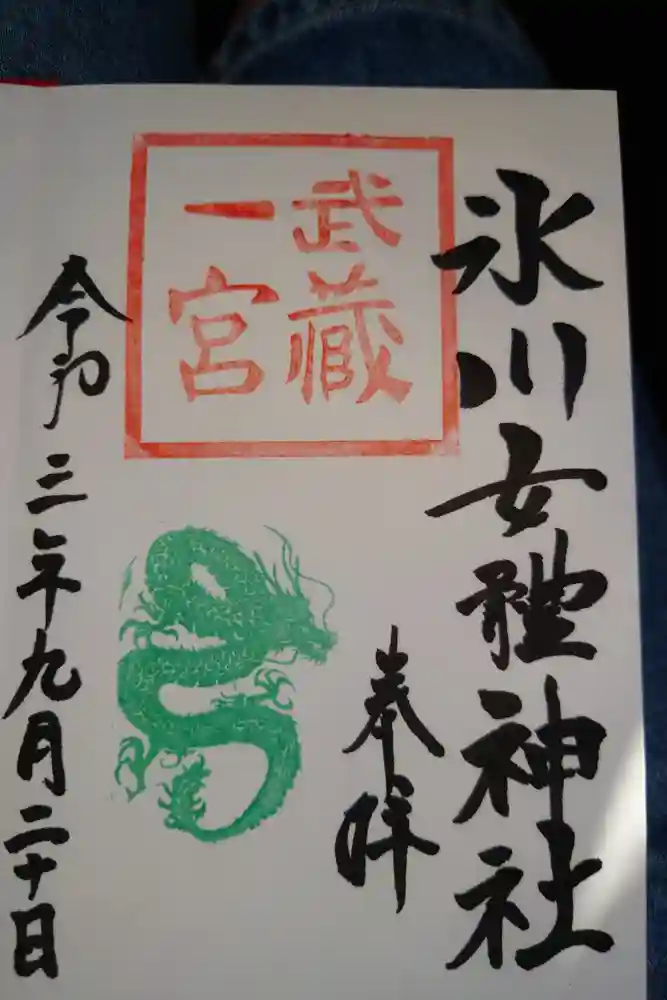 氷川女體神社
奉拝
武蔵
一宮
令和三年九月二十日